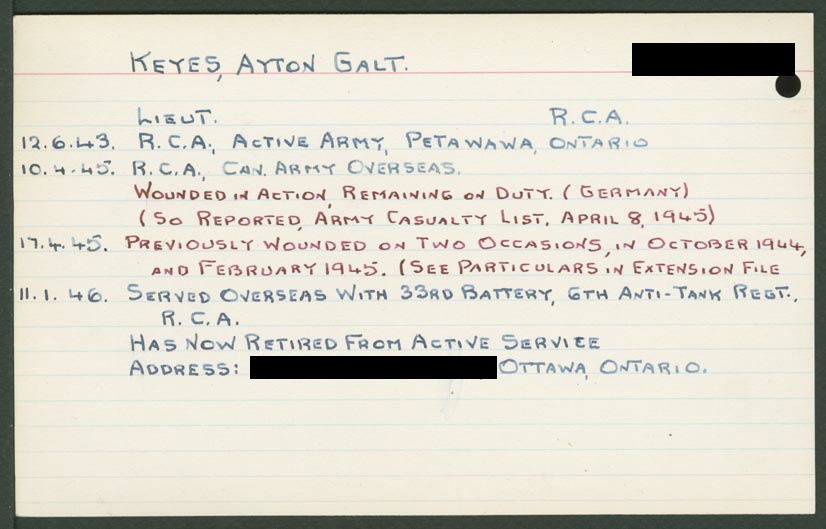 KEYES, AYTON GALT.
LIEUT. R.C.A.
12.6.43. R.C.A., ACTIVE ARMY, PETAWAWA, ONTARIO
10.4.45. R.C.A., CAN. ARMY OVERSEAS.
WOUNDED IN ACTION, REMAINING ON DUTY. (GERMANY)
(SO REPORTED, ARMY CASUALTY LIST, APRIL 8, 1945)
17.4.45. PREVIOUSLY WOUNDED ON TWO OCCASIONS, IN OCTOBER 1944,
AND FEBRUARY 1945. (SEE PARTICULARS IN EXTENSION FILE
11.1.46. SERVED OVERSEAS WITH 33RD BATTERY, 6TH ANTI-TANK REGT.,
R.C.A.
HAS NOW RETIRED FROM ACTIVE SERVICE
ADDRESS: OTTAWA, ONTARIO.